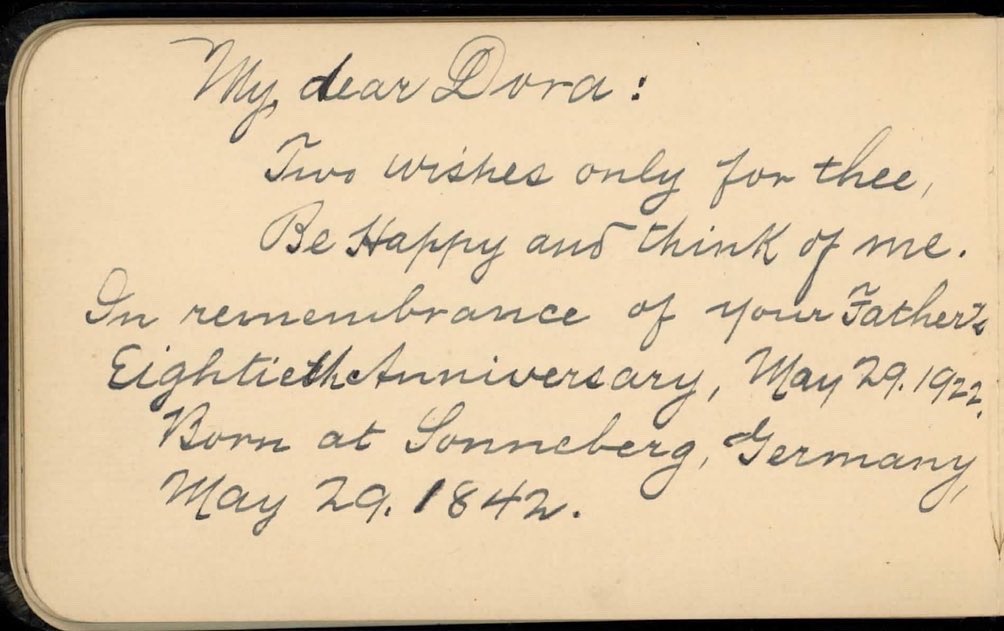 My dear Dora:
Two wishes only for thee,
Be Happy and think of me.
In remembrance of your Father's
Eightieth Anniversary, May 29. 1922.
Born at Sonneberg, Germany,
May 29. 1842.